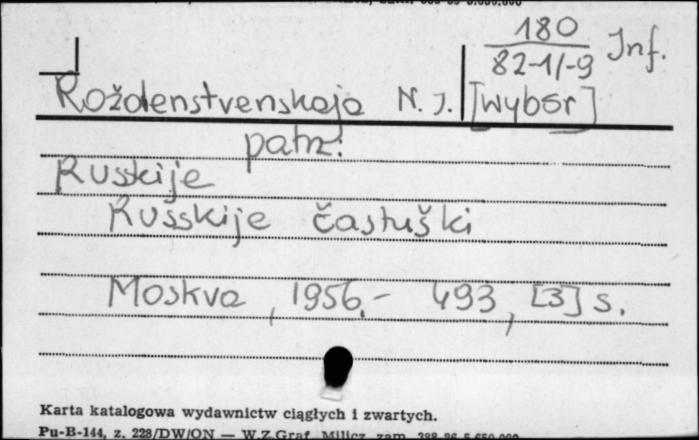 180
82-1/-9 Inf.
Roždenstvenskaja N. J. [wybór]
patrz:
Ruskije
Russkije častuški
Moskva, 1956.- 493, [3] s.
Karta katalogowa wydawnictw ciągłych i zwartych.
Pu-B-144, z. 228/DW/ON — W.Z.Graf. Milicz, zam.